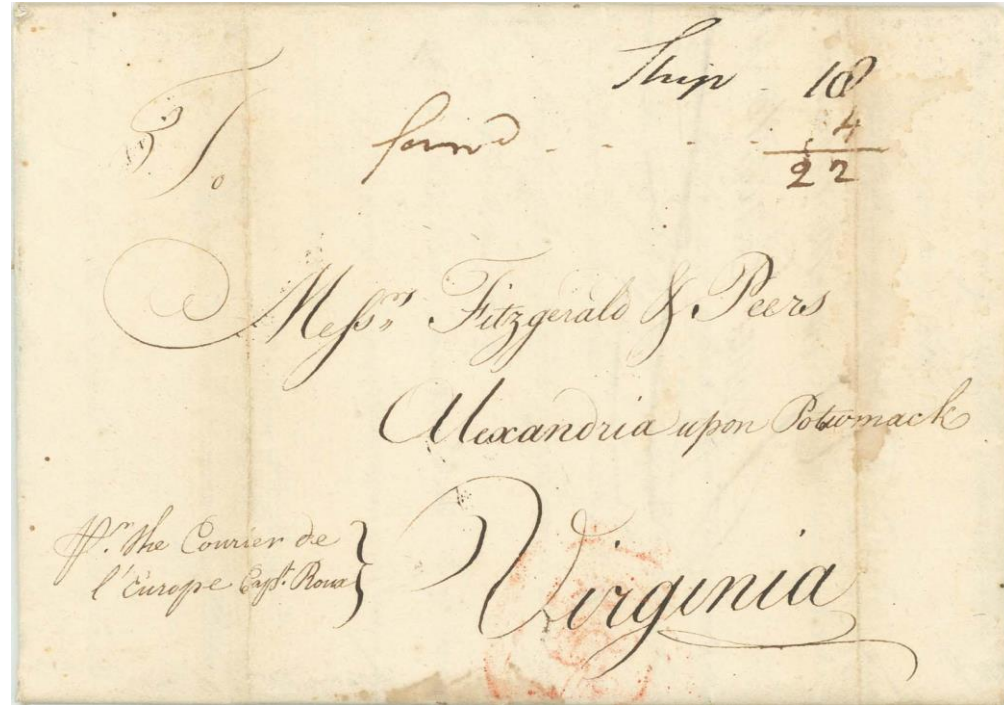 Ship 18
To forwd 4
22
Messrs Fitzgerald & Peers
Alexandria upon Potowmack
Virginia
Pr. the Courier de
l'Europe Capt.